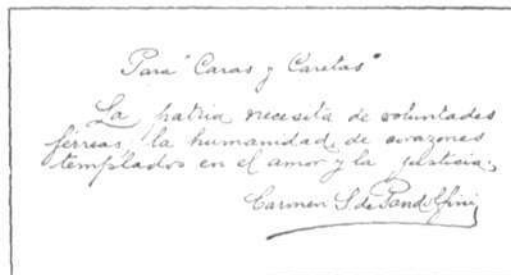 Para "Caras y Caretas"
La patria necesita de voluntades
férreas, la humanidad, de corazones
templados en el amor y la justicia.
Carmen S. de Pandolfini